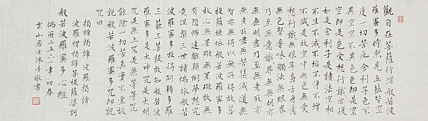 觀自在菩薩行深般若波
羅蜜多時照見五蘊皆空
度一切苦厄舍利子色不
異空空不異色色即是
空空即是色受想行識亦復
如是舍利子是諸法空相
不生不滅不垢不淨不增
不減是故空中無色無受
想行識無眼耳鼻舌身意
無色聲香味觸法無眼界
乃至無意識界無無明亦
無無明盡乃至無老死亦
無老死盡無苦集滅道無
智亦無得以無所得故菩
提薩埵依般若波羅蜜多
故心無罣礙無罣礙故無
有恐怖遠離顛倒夢想究
竟涅槃三世諸佛依般若
波羅蜜多故得阿耨多羅
三藐三菩提故知般若波
羅蜜多是大神咒是大明
咒是無上咒是無等等咒
能除一切苦真實不虛故
說般若波羅蜜多咒即說
咒曰
揭諦揭諦 波羅揭諦
波羅僧揭諦 菩提薩婆訶
般若波羅蜜多心經
年初春
居士 敬書